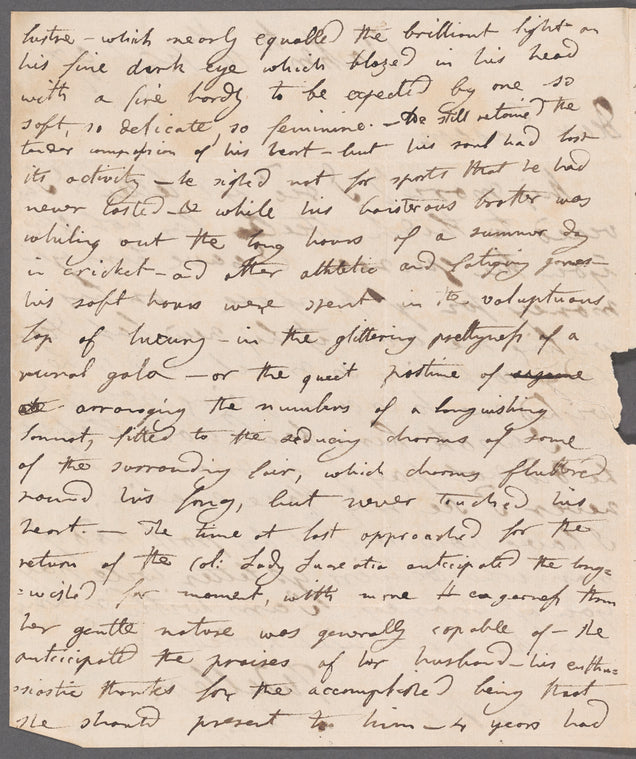 lustre – which nearly equalled the brilliant light on
his fine dark eye which blazed in his head
with a fire hardly to be expected by one so
soft, so delicate, so feminine. – He still retained the
tender compassion of his heart – but his soul had lost
its activity – he sighed not for sports that he had
never tasted – & while his boisterous brother was
whiling out the long hours of a summer day
in cricket – and other athletic and fatiging games –
his soft hours were spent in the voluptuous
lap of luxury – in the glittering prettyness of a
rural gala – or the quiet pastime of
arranging the numbers of a languishing
Sonnet, fitted to the seducing charms of some
of the surrounding fair, which charms fluttered
round his song, but never touched his
heart. – The time at last approached for the
return of the Col: Lady Lucretia anticipated the long=
=wished for moment, with more eagerness than
her gentle nature was generally capable of – she
anticipated the praises of her husband – his enthu=
siastic thanks for the accomplished being that
she should present to him – 4 years had